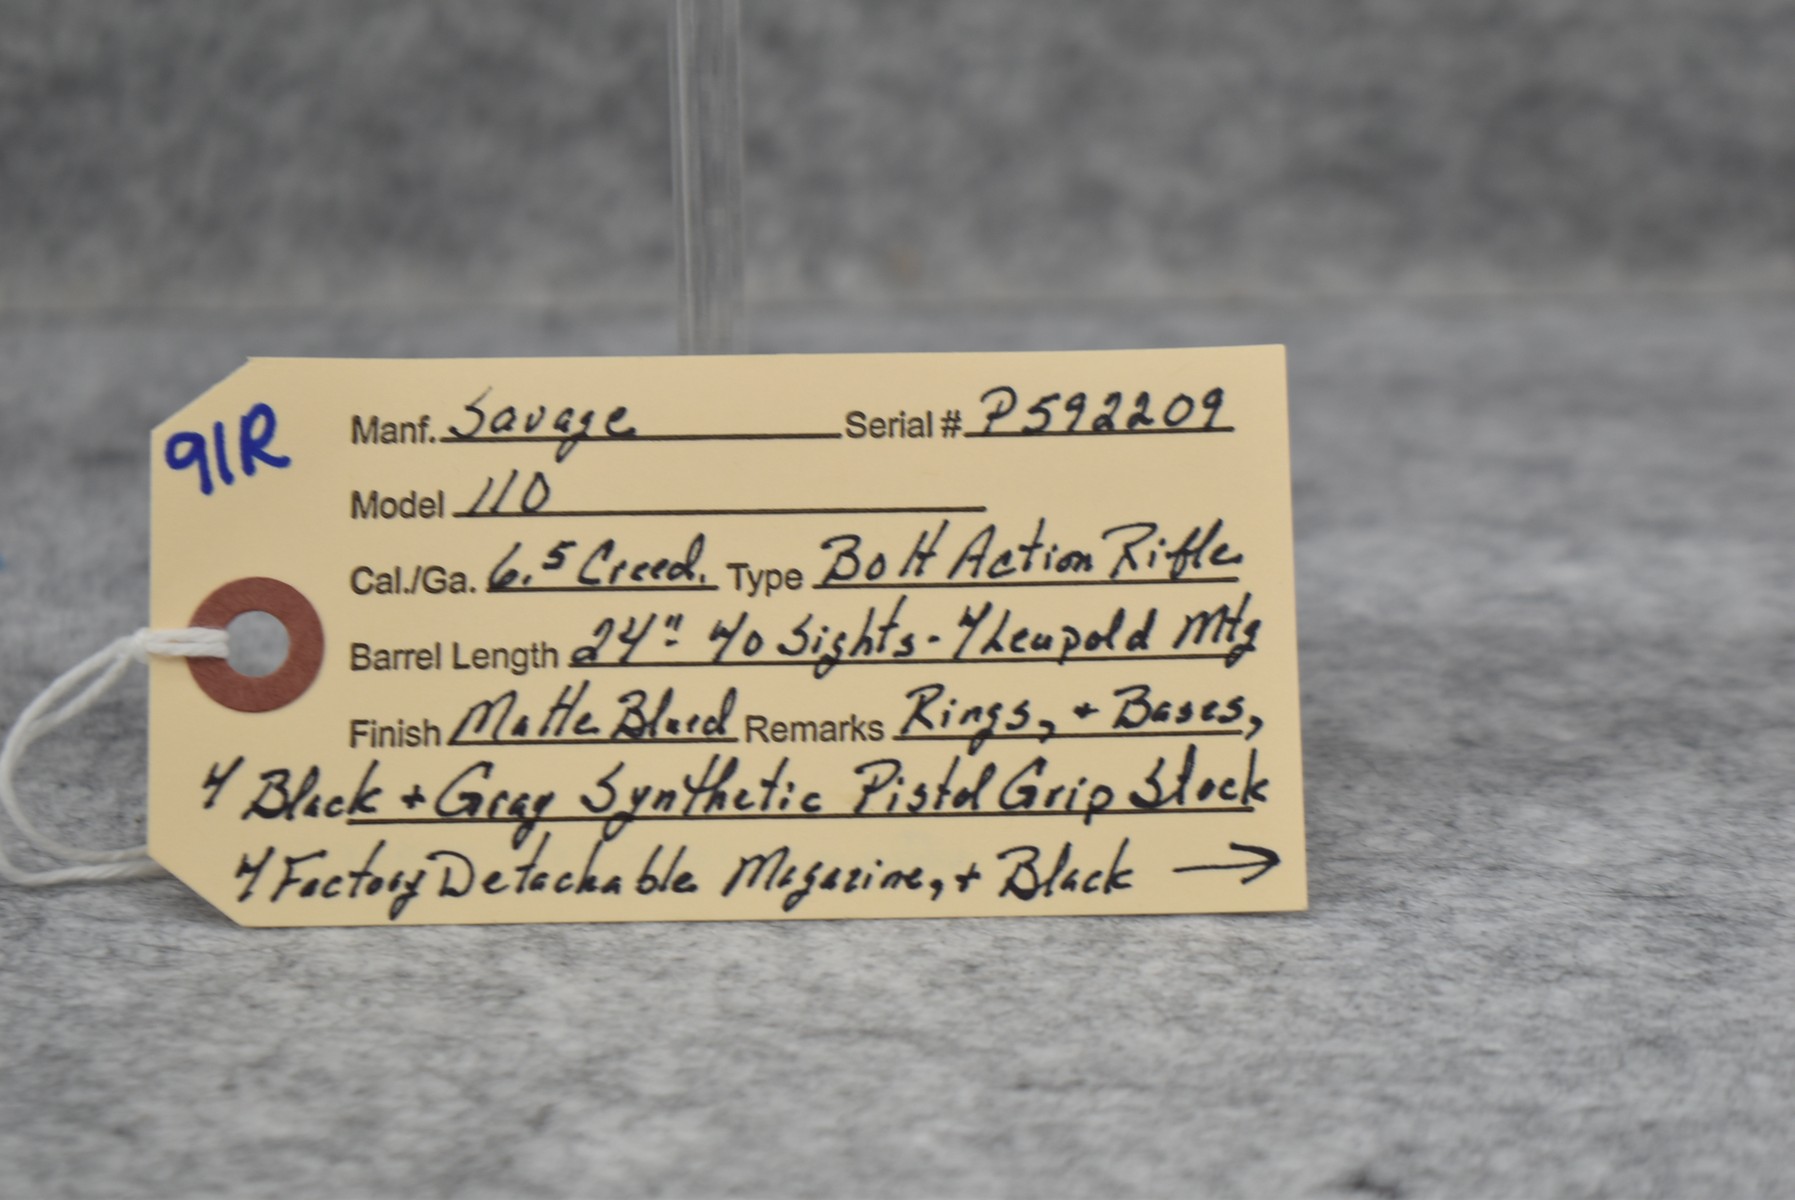 91R
Manf. Savage Serial # P592209
Model 110
Cal./Ga. 6.5 Creed. Type Bolt Action Rifle
Barrel Length 24" w/o Sights - w/ Leupold Mtg
Finish Matte Blued Remarks Rings, + Bases,
w/ Black + Gray Synthetic Pistol Grip Stock
w/ Factory Detachable Magazine, + Black →